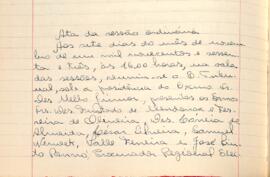 Ata da sessão ordinária
Aos sete dias do mês de novem
bro de um mil novecentos e sessen
ta e três, às 16,00 horas, na sala
das sessões, reuniu-se o D. Tribu
nal, sob a presidência do Exmo Sr.
Des. Mello Júnior, presentes os Exmos
Srs. Des. Furtado de Mendonça e Fer
reira de Oliveira, Des. Corrêa de
Almeida, César Silveira, Samuel
Werneck, Valle Ferreira e José
do Procurador Regional Elei